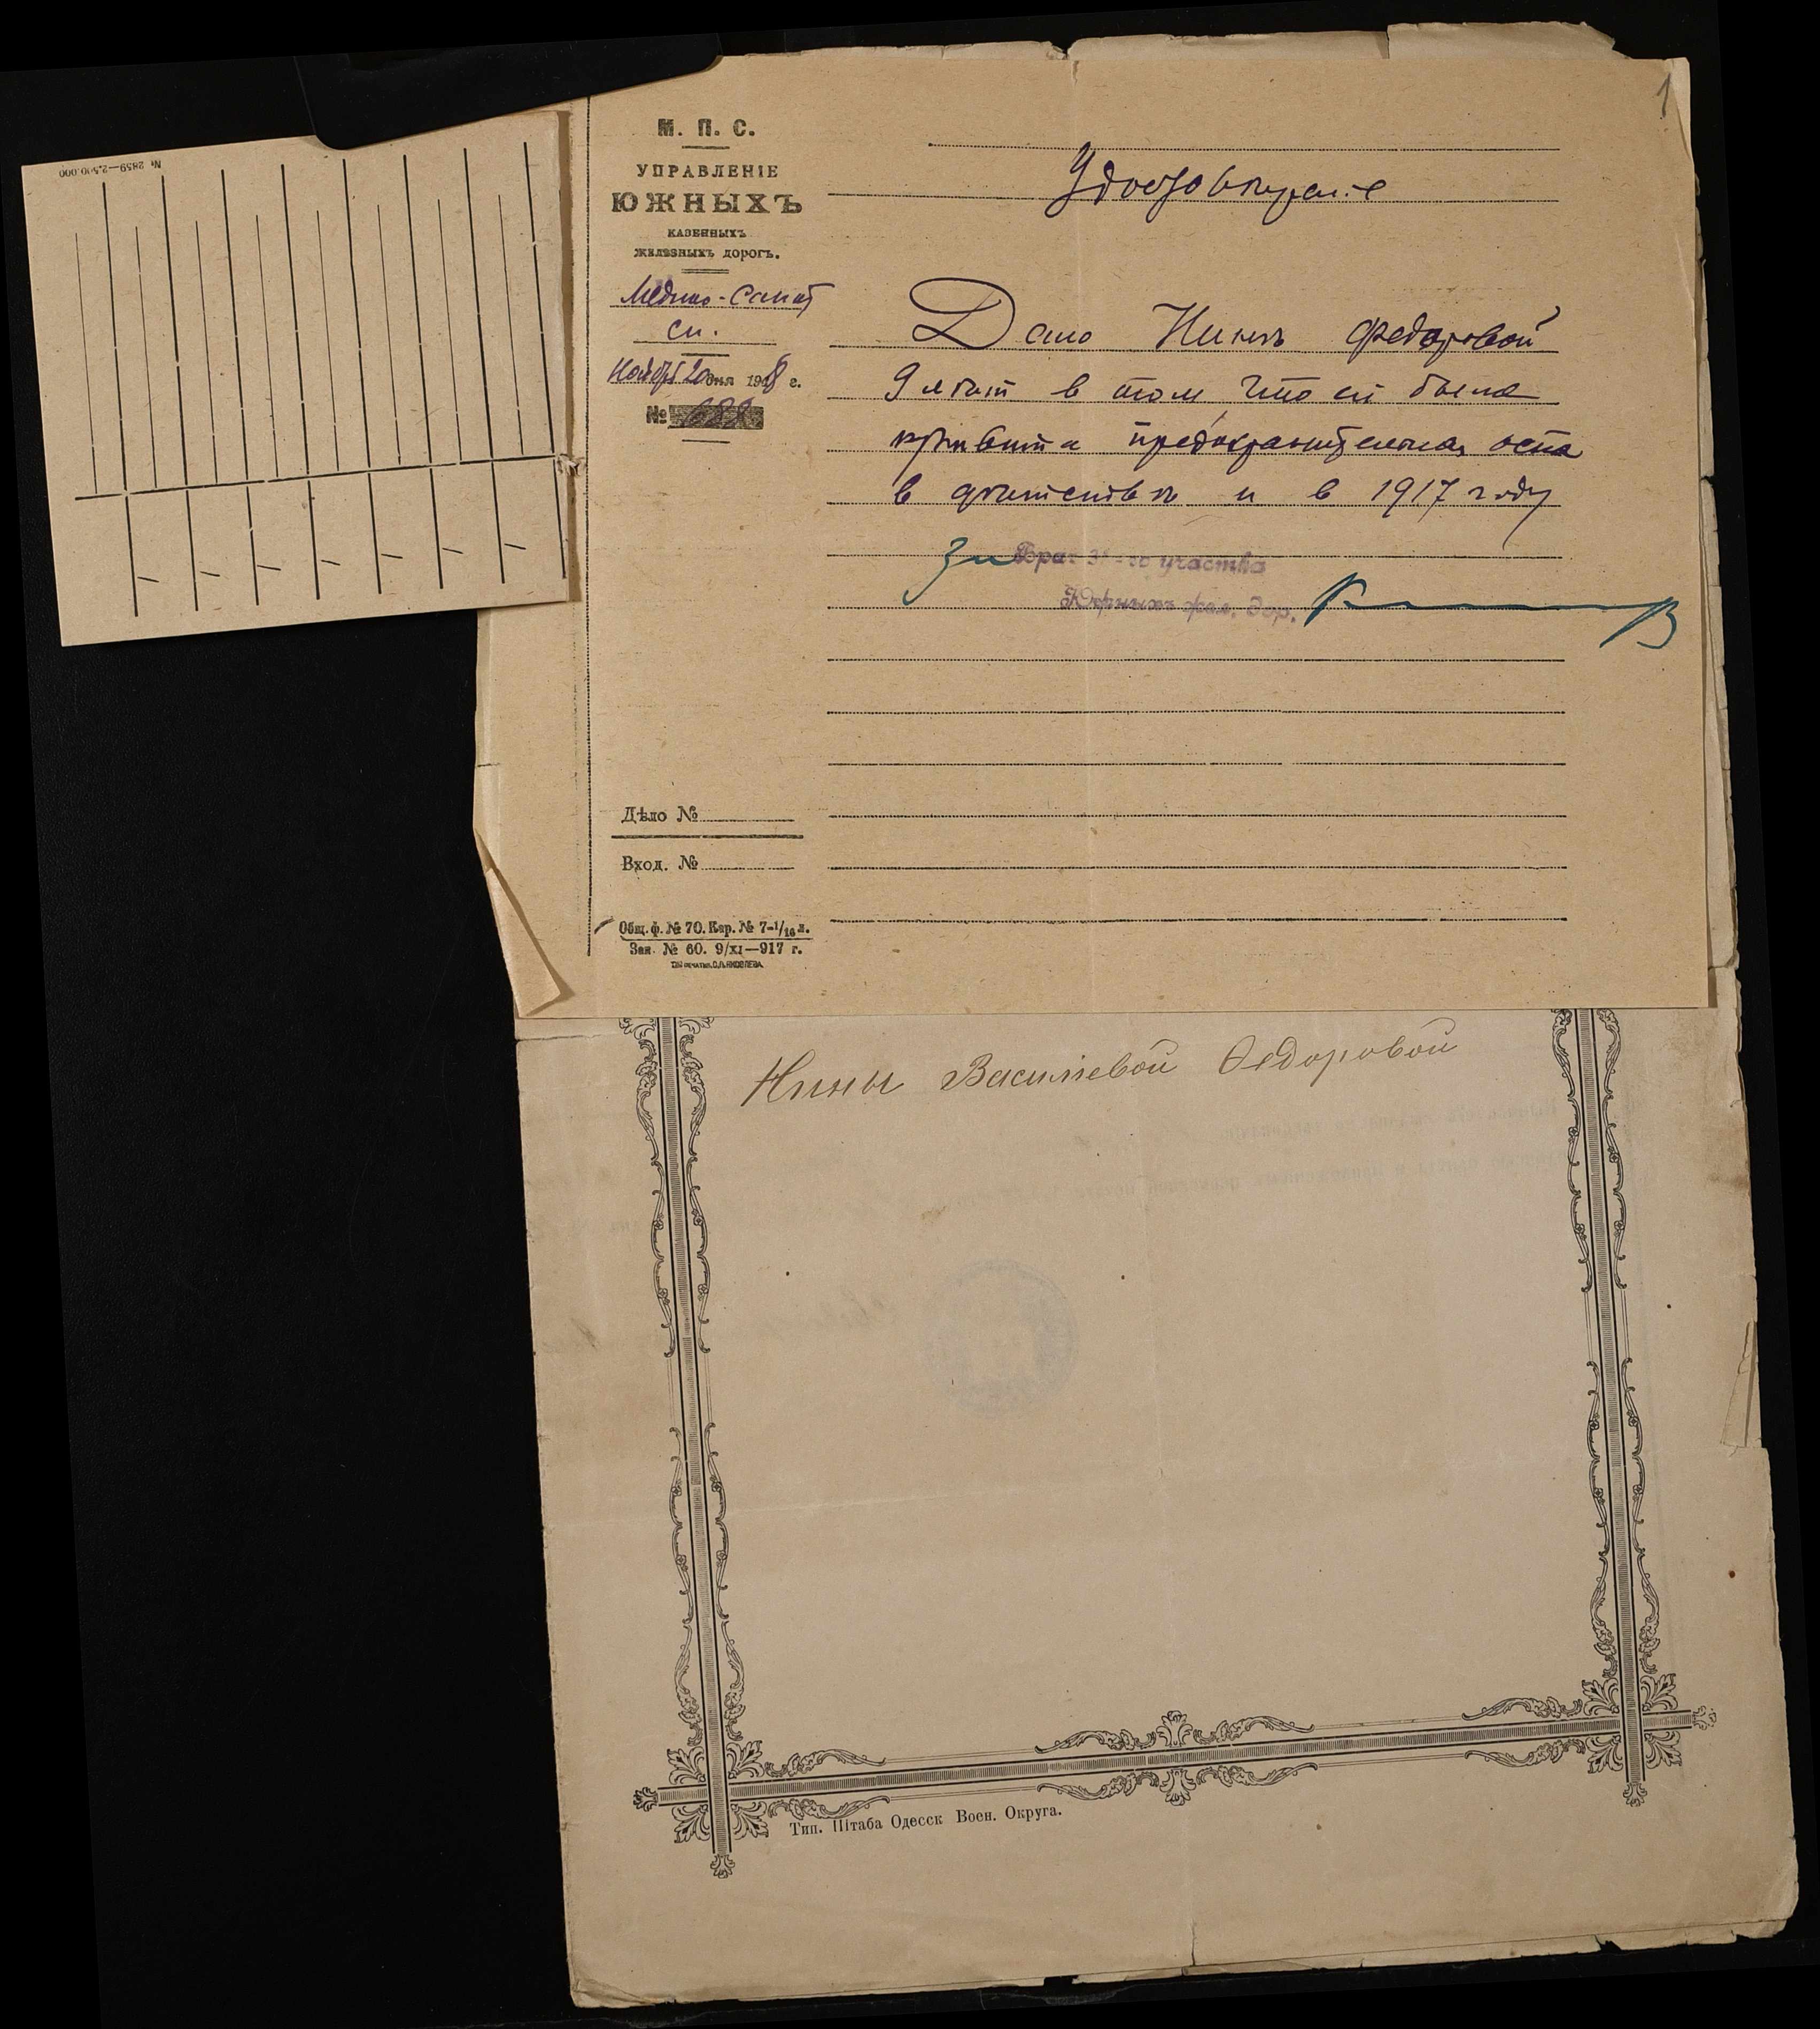 № 2859—2.500.000
1
М. П. С.
УПРАВЛЕНІЕ
ЮЖНЫХЪ
КАЗЕННЫХЪ
ЖЕЛѢЗНЫХЪ ДОРОГЪ.
Медико-Санит
сл.
Ноября 20 дня 1918 г.
№ 688
Удостовѣреніе
Дано Нинѣ Федоровой
9 лѣт в том, что ей была
привита предохранительная оспа
в дѣтствѣ и в 1917 году
За Врач участка
Южныхъ жел. дор.
Дѣло №
Вход. №
Общ. ф. № 70. Кар. № 7-1/16 л.
Зак. № 60. 9/XI—917 г.
Нины Василіевой Ѳедоровой
Тип. Штаба Одесск Воен. Округа.